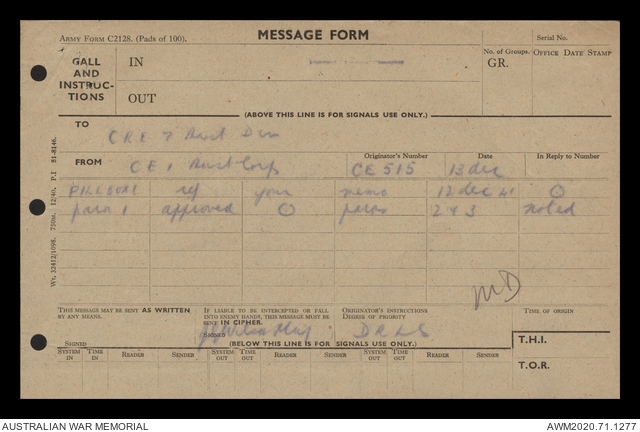 ARMY FORM C2128. (Pads of 100).
MESSAGE FORM
Serial No.
CALL AND INSTRUC-TIONS
IN
OUT
No. of Groups.
GR.
OFFICE DATE STAMP
(ABOVE THIS LINE IS FOR SIGNALS USE ONLY.)
TO
CRE 7 Aust Div
FROM
CE 1 Aust Corps
Originator's Number
CE 515
Date
13 dec
In Reply to Number
PILLBOXES ref your memo 12 dec 41 O
para 1 approved O paras 2 & 3 noted
MD
Wt. 33412/1098. 750m. 12/40. P.I 51-8146.
THIS MESSAGE MAY BE SENT AS WRITTEN BY ANY MEANS.
SIGNED
IF LIABLE TO BE INTERCEPTED OR FALL INTO ENEMY HANDS, THIS MESSAGE MUST BE SENT IN CIPHER.
SIGNED
ORIGINATOR'S INSTRUCTIONS DEGREE OF PRIORITY
DRLS
TIME OF ORIGIN
(BELOW THIS LINE IS FOR SIGNALS USE ONLY.)
T.H.I.
SYSTEM IN TIME IN READER SENDER SYSTEM OUT TIME OUT READER SENDER SYSTEM OUT TIME OUT READER SENDER
T.O.R.
AUSTRALIAN WAR MEMORIAL
AWM2020.71.1277